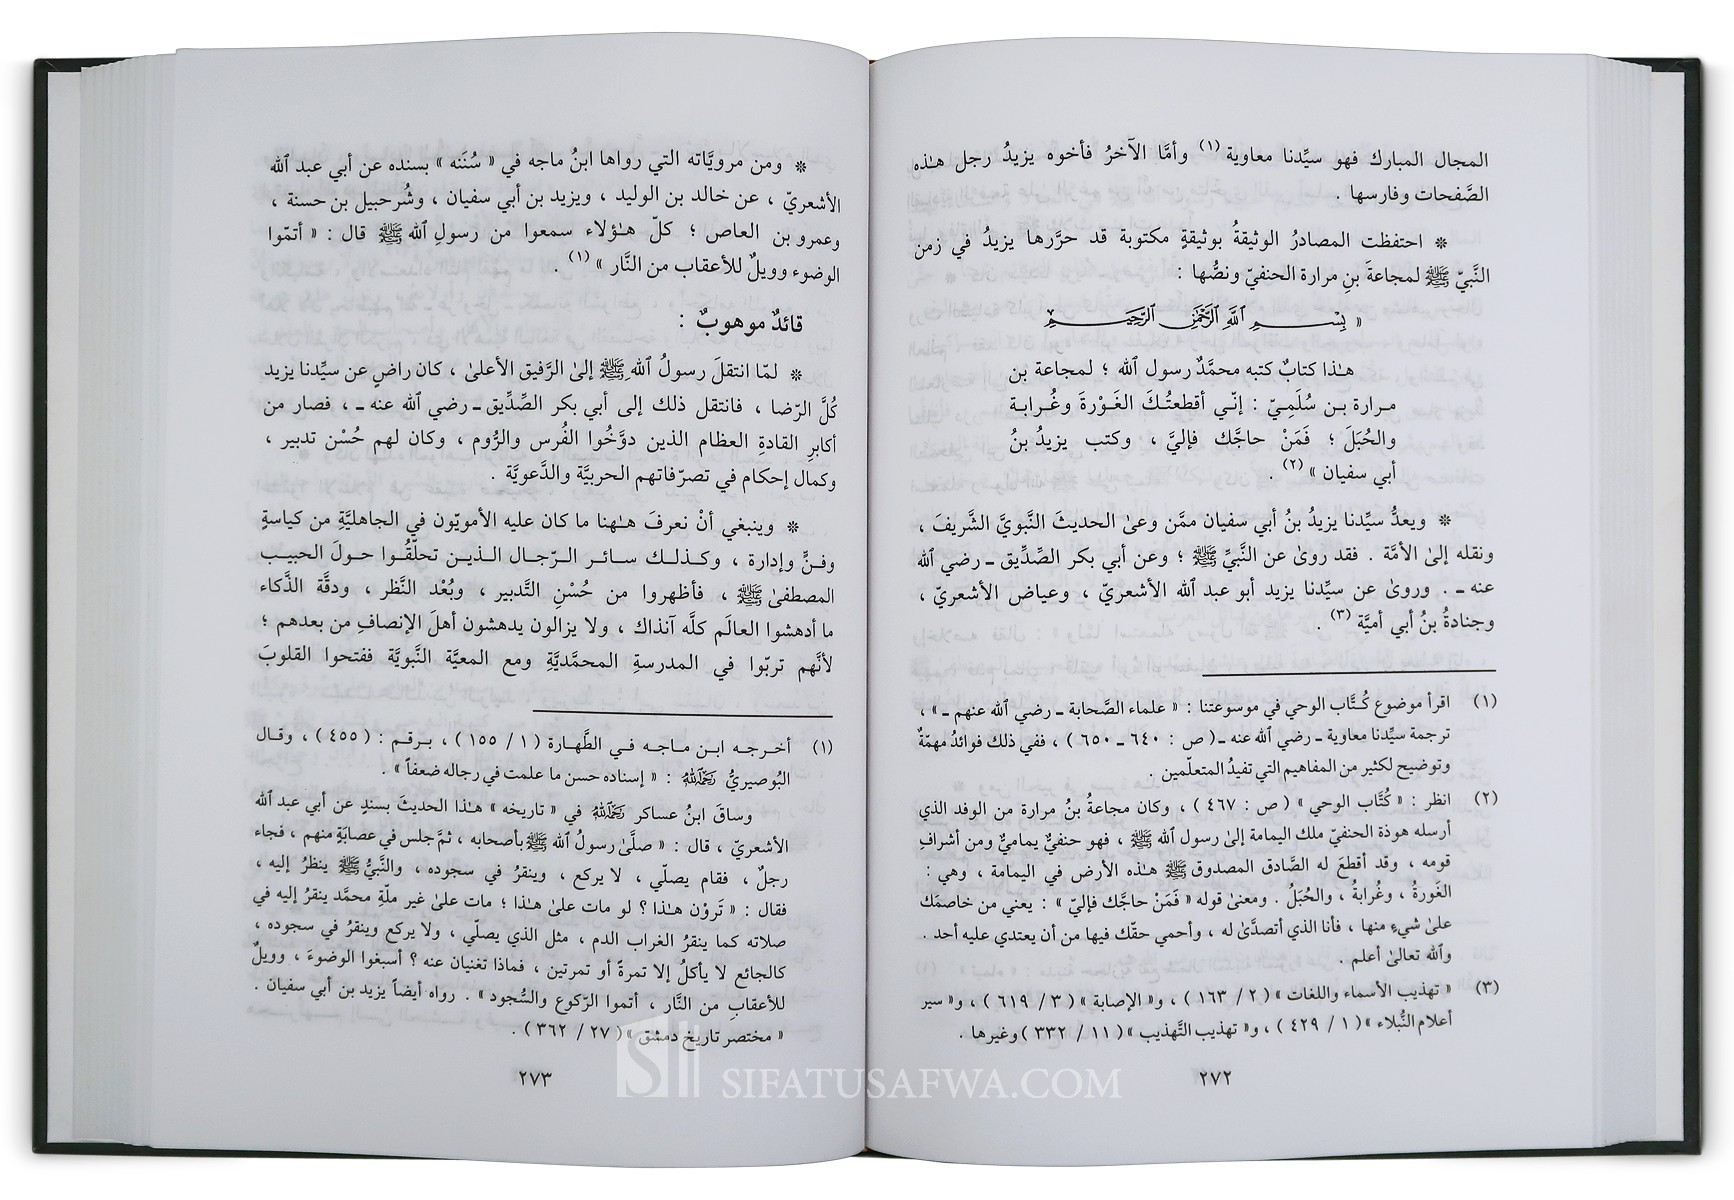 المجال المبارك فهو سيِّدنا معاوية (١) وأمَّا الآخرُ فأخوه يزيدُ رجل هـٰذه
الصَّفحات وفارسها .
* احتفظت المصادرُ الوثيقةُ بوثيقةٍ مكتوبة قد حرَّرها يزيدُ في زمن
النَّبيّ ﷺ لمجاعةَ بنِ مرارة الحنفيّ ونصُّها :
« بِسْمِ اللهِ الرَّحْمَنِ الرَّحِيمِ
هـٰذا كتابٌ كتبه محمَّدٌ رسول الله ؛ لمجاعة بن
مرارة بن سُلَمِيّ : إنّي أقطعتُكَ الغَوْرةَ وغُرابة
والحُبَلَ ؛ فَمَنْ حاجَّك فإليَّ ، وكتب يزيدُ بنُ
أبي سفيان » (٢) .
* ويعدُّ سيِّدنا يزيدُ بنُ أبي سفيان ممَّن وعىٰ الحديثَ النَّبويَّ الشَّريفَ ،
ونقله إلىٰ الأمَّة . فقد روىٰ عن النَّبيِّ ﷺ ؛ وعن أبي بكر الصِّدِّيق ـ رضي الله
عنه ـ . وروىٰ عن سيِّدنا يزيد أبو عبد الله الأشعريّ ، وعياض الأشعريّ ،
وجنادةُ بنُ أبي أميَّة (٣) .
(١) اقرأ موضوع كُتَّاب الوحي في موسوعتنا : « علماء الصَّحابة ـ رضي الله عنهم ـ » ،
ترجمة سيِّدنا معاوية ـ رضي الله عنه ـ ( ص : ٦٤٠ ـ ٦٥٠ ) ، ففي ذلك فوائدُ مهمّةٌ
وتوضيح لكثير من المفاهيم التي تفيدُ المتعلّمين .
(٢) انظر : « كُتَّاب الوحي » ( ص : ٤٦٧ ) ، وكان مجاعةُ بنُ مرارة من الوفد الذي
أرسله هوذة الحنفيّ ملك اليمامة إلىٰ رسول الله ﷺ ، فهو حنفيٌّ يماميٌّ ومن أشرافِ
قومه ، وقد أقطعَ له الصَّادق المصدوق ﷺ هـٰذه الأرض في اليمامة ، وهي :
الغَورةُ ، وغُرابةُ ، والحُبَلُ . ومعنىٰ قوله « فَمَنْ حاجَّك فإليّ » : يعني من خاصمَك
علىٰ شيءٍ منها ، فأنا الذي أتصدَّىٰ له ، وأحمي حقّك فيها من أن يعتدي عليه أحد .
والله تعالىٰ أعلم .
(٣) « تهذيب الأسماء واللغات » ( ٢ / ١٦٣ ) ، و« الإصابة » ( ٣ / ٦١٩ ) ، و« سير
أعلام النُّبلاء » ( ١ / ٤٢٩ ) ، و« تهذيب التَّهذيب » ( ١١ / ٣٣٢ ) وغيرها .
٢٧٢
* ومن مرويَّاته التي رواها ابنُ ماجه في « سُنَنه » بسنده عن أبي عبد الله
الأشعريّ ، عن خالد بن الوليد ، ويزيد بن أبي سفيان ، وشُرحبيل بن حسنة ،
وعمرو بن العاص ؛ كلّ هـٰؤلاء سمعوا من رسولِ الله ﷺ قال : « أتمّوا
الوضوء وويلٌ للأعقاب من النَّار » (١) .
قائدٌ موهوبٌ :
* لمّا انتقلَ رسولُ اللهِ ﷺ إلىٰ الرَّفيق الأعلىٰ ، كان راضٍ عن سيِّدنا يزيد
كُلَّ الرّضا ، فانتقل ذلك إلى أبي بكر الصِّدِّيق ـ رضي الله عنه ـ ، فصار من
أكابرِ القادةِ العظام الذين دوَّخُوا الفُرس والرُّوم ، وكان لهم حُسْن تدبير ،
وكمال إحكام في تصرّفاتهم الحربيَّة والدَّعويَّة .
* وينبغي أنْ نعرفَ هـٰهنا ما كان عليه الأمويّون في الجاهليَّةِ من كياسةٍ
وفنٍّ وإدارة ، وكـذلـك سائـر الرّجـال الـذيـن تحلّقُـوا حـولَ الحبيب
المصطفىٰ ﷺ ، فأظهروا من حُسْنِ التَّدبير ، وبُعْد النَّظر ، ودقَّة الذَّكاء
ما أدهشوا العالَم كلَّه آنذاك ، ولا يزالون يدهشون أهلَ الإنصافِ من بعدهم ؛
لأنَّهم تربّوا في المدرسةِ المحمَّديَّةِ ومع المعيَّة النَّبويَّة ففتحوا القلوبَ
(١) أخرجه ابن ماجه في الطَّهارة ( ١ / ١٥٥ ) ، برقم : ( ٤٥٥ ) ، وقال
البُوصيريُّ رحمه الله : « إسناده حسن ما علمت في رجاله ضعفاً » .
وساقَ ابنُ عساكر رحمه الله في « تاريخه » هـٰذا الحديثَ بسندٍ عن أبي عبد الله
الأشعريّ ، قال : « صلَّىٰ رسولُ الله ﷺ بأصحابه ، ثمَّ جلس في عصابَةٍ منهم ، فجاء
رجلٌ ، فقام يصلّي ، لا يركع ، وينقرُ في سجوده ، والنَّبيُّ ﷺ ينظرُ إليه ،
فقال : « تَروْن هـٰذا ؟ لو مات علىٰ هـٰذا ؛ مات علىٰ غير ملّةِ محمَّد ينقرُ إليه في
صلاته كما ينقرُ الغراب الدم ، مثل الذي يصلّي ، ولا يركع وينقرُ في سجوده ،
كالجائع لا يأكلُ إلا تمرةً أو تمرتين ، فماذا تغنيان عنه ؟ أسبغوا الوضوءَ ، وويلٌ
للأعقابِ من النَّار ، أتموا الرّكوع والسُّجود » . رواه أيضاً يزيد بن أبي سفيان .
« مختصر تاريخ دمشق » ( ٢٧ / ٣٦٢ ) .
٢٧٣
SIFATUSAFWA.COM